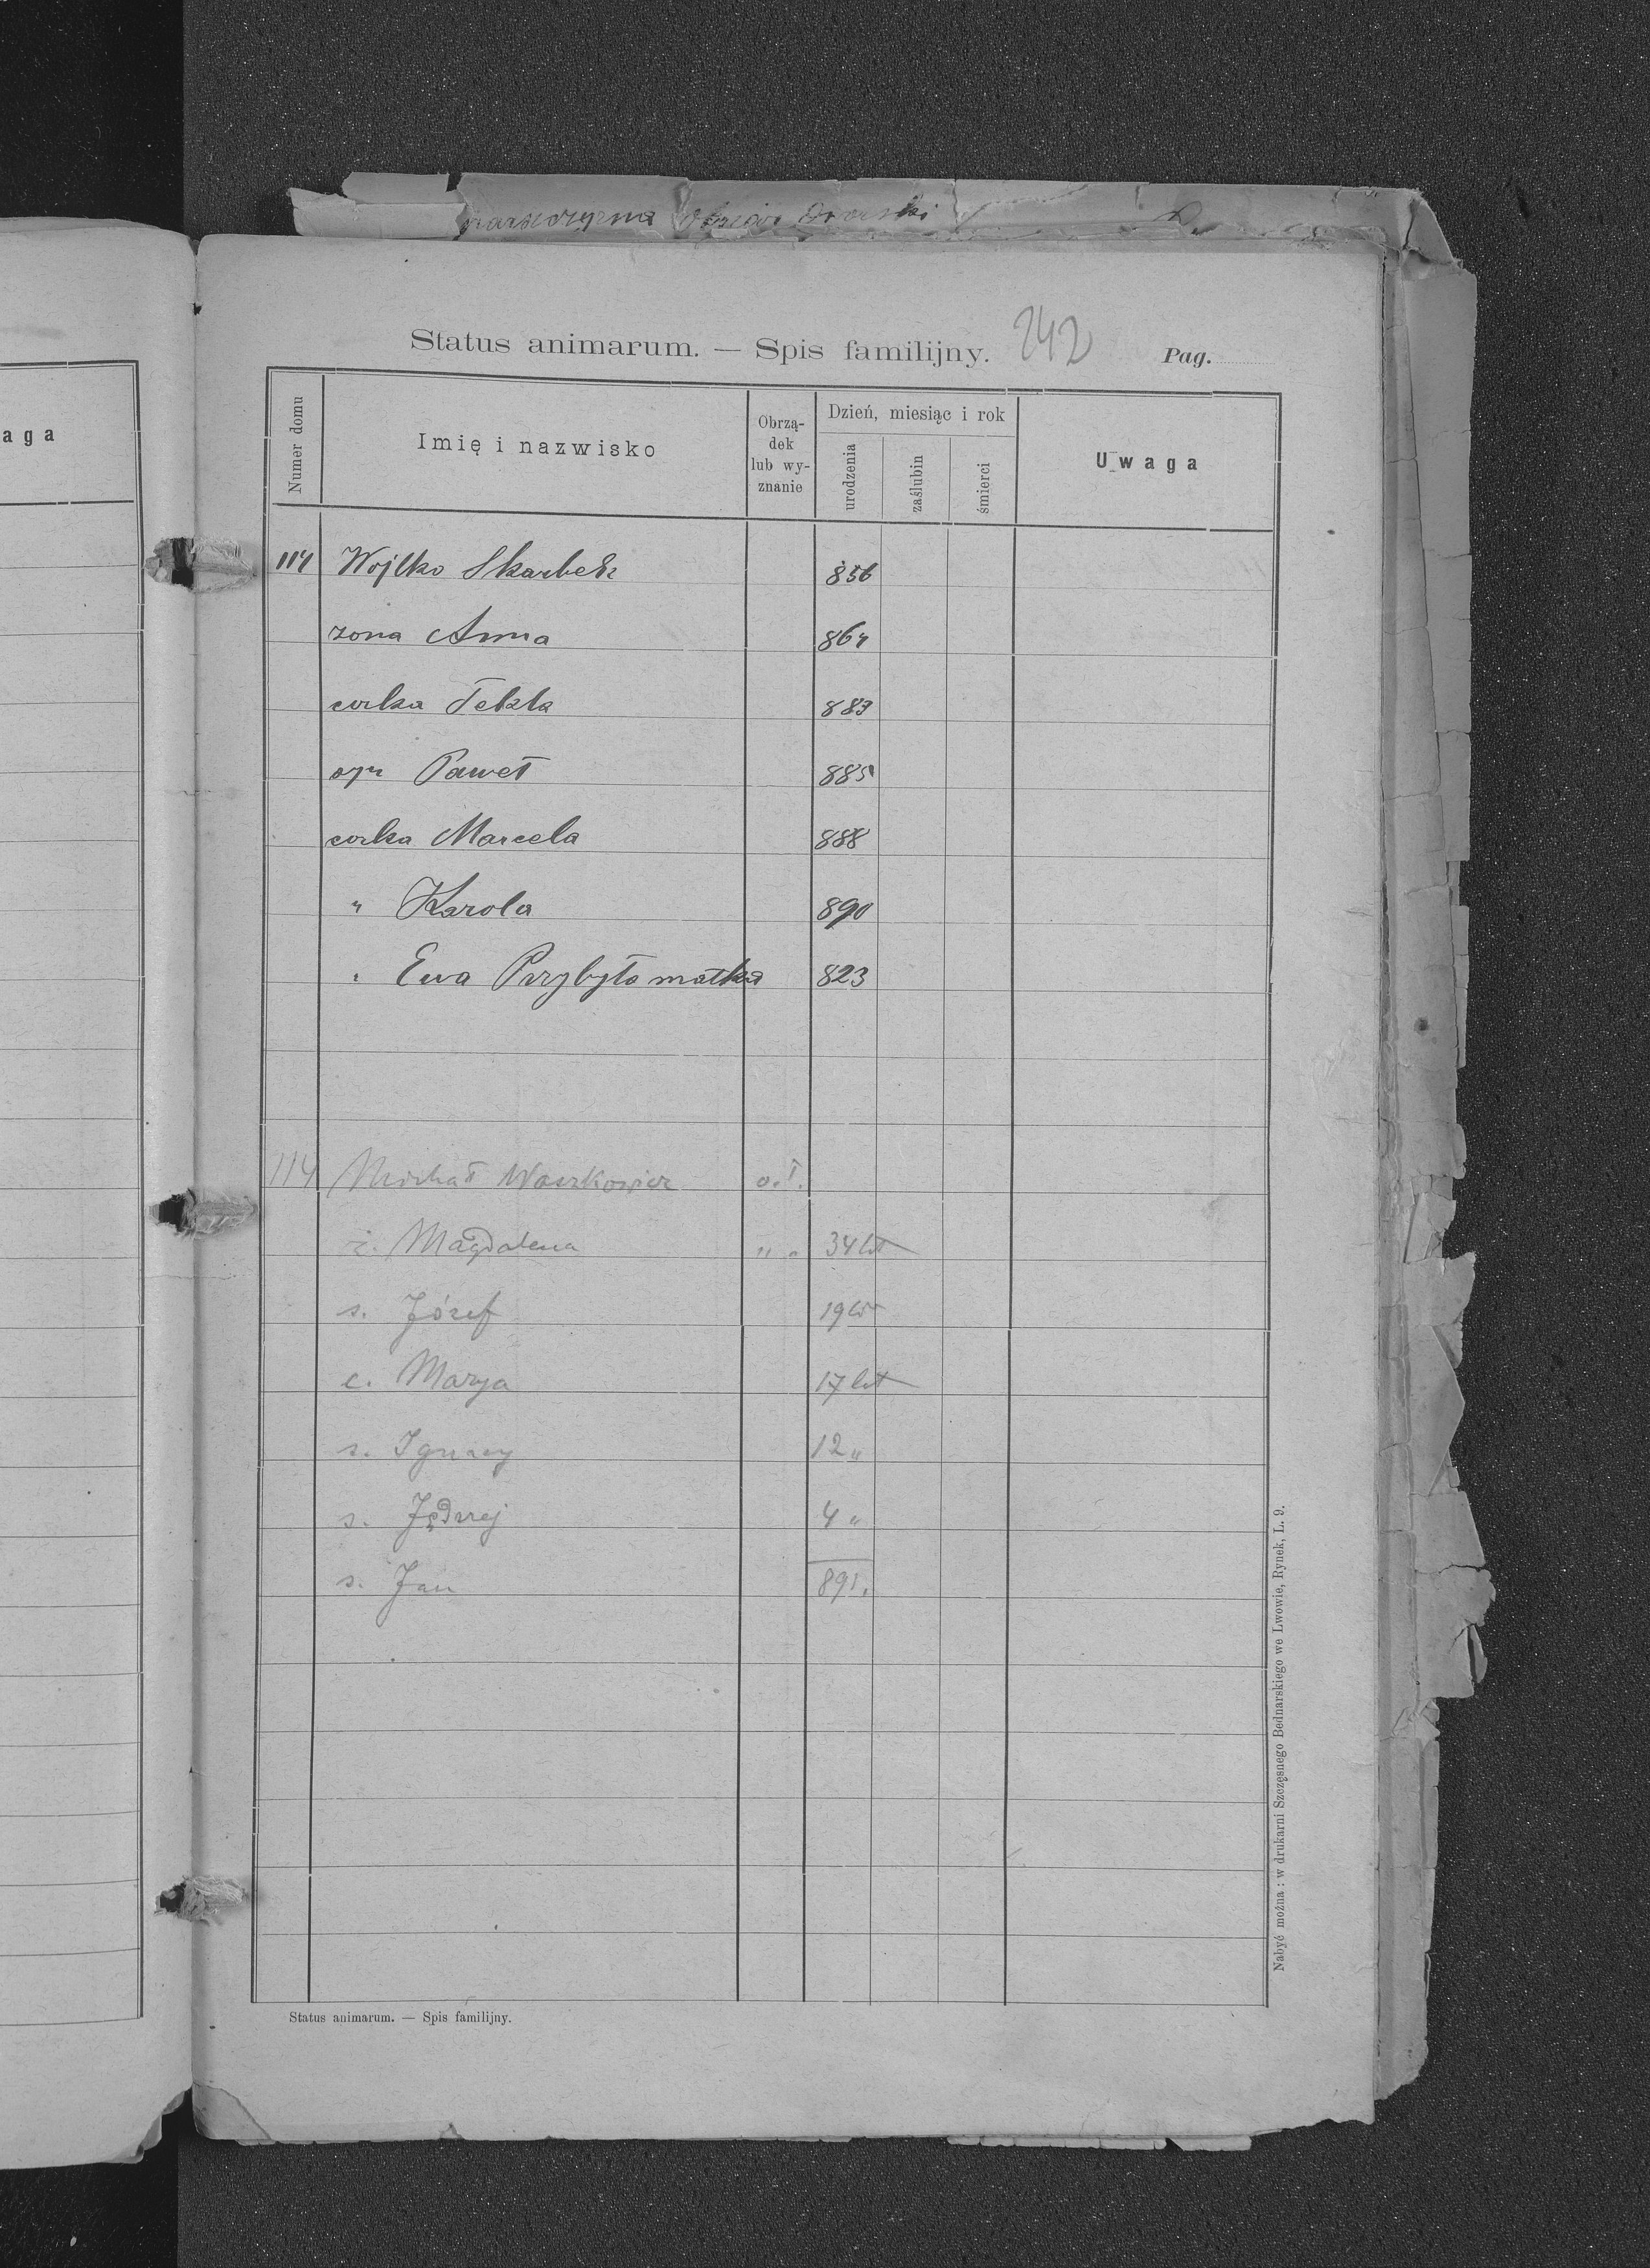 Status animarum. — Spis familijny. 242 Pag.
aga
Numer domu
Imię i nazwisko
Obrzą-
dek
lub wy-
znanie
Dzień, miesiąc i rok
urodzenia
zaślubin
śmierci
Uwaga
114 Wojtko Skarbek 856
zona Anna 864
corka Tekla 883
syn Paweł 885
corka Marcela 888
" Karola 890
" Ewa Przybyło matka 823
114 Michał Waszkowicz o.ł.
ż. Magdalena " " 34 lat
s. Józef 19 lat
c. Marya 17 lat
s. Ignacy 12 "
s. Jędrzej 4 "
s. Jan 891.
Status animarum. — Spis familijny.
Nabyć można: w drukarni Szczęsnego Bednarskiego we Lwowie, Rynek, L. 9.